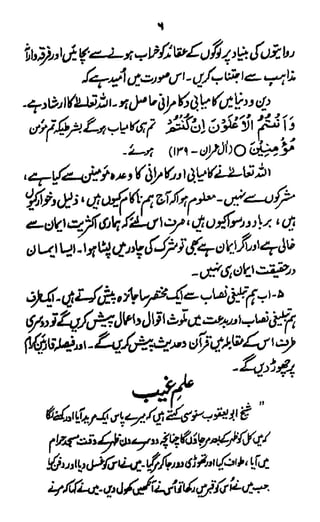 ۶
روایتوں کی بنیاد پر لوگوں کے عقائد کو خراب ہونے سے بچائیں اور فرقہ وارانہ
مذاہب سے اجتناب کریں۔ اس صورت میں اُمید ہے کہ
دین و دنیا میں کامیابی و کامرانی حاصل ہو۔ اللہ تعالیٰ کا ارشاد ہے۔
وَاَنْتُمُ الْاَعْلَوْنَ اِنْ كُنْتُمْ تم ہی کامیاب ہوگے بشرطیکہ تم مومن
مُّؤْمِنِیْنَ ○ (آل عمران - ۱۳۹) ہوئے۔
اللہ تعالیٰ نے کامیابی اور کامرانی کا وعدہ مومنین سے کیا ہے،
مشرکوں سے نہیں۔ معلوم ہوا کہ آج ہم ناکام کیوں ہیں، ذلیل و خوار کیوں
ہیں، برباد و رسوا کیوں ہیں، صرف اس لئے کہ ہماری اکثریت ایمان سے
خالی ہے اور اگر ایمان ہے بھی تو شرک کی چادر میں لپٹا ہوا۔ ایسا ایمان
درحقیقت ایمان ہی نہیں۔
۵۔ اب ہم تبلیغی نصاب سے ایک مختصر سا جائزہ پیش کرتے ہیں۔ ایک طرف
ہم تبلیغی نصاب اور بدعت میں ملوث اقوال و اعمال پیش کریں گے تو دوسری
طرف اس کے مقابلہ میں قرآن و حدیث پیش کریں گے۔ اور فیصلہ قارئین کرام
پر چھوڑ دیں گے۔
علم غیب
" شیخ ابو یعقوب سنوسی کہتے ہیں کہ میرے پاس ایک مرید آیا اور کہنے لگا
کہ میں کل کو ظہر کے بعد مرجاؤں گا چنانچہ دوسرے دن ظہر کے وقت مسجد حرام
میں آیا، طواف کیا اور تھوڑی دور جا کر مر گیا۔ میں نے اس کو غسل دیا اور دفن کیا
جب میں نے اُس کو قبر میں رکھا تو اُس نے آنکھیں کھول دیں۔ میں نے کہا کہ مرنے